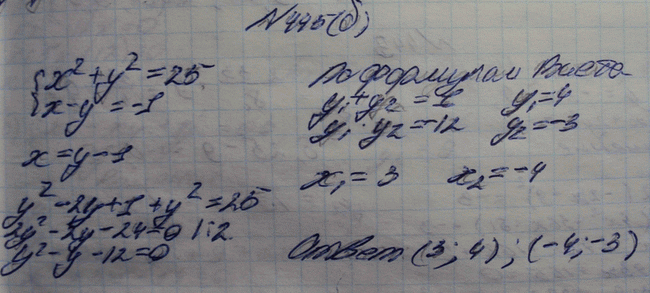 №445(б)
{x²+y²=25
{x-y=-1
x=y-1
y²-2y+1+y²=25
2y²-2y-24=0 |:2
y²-y-12=0
По формулам Виета
y₁+y₂=1 y₁=4
y₁·y₂=-12 y₂=-3
x₁=3 x₂=-4
Ответ (3; 4); (-4;-3)